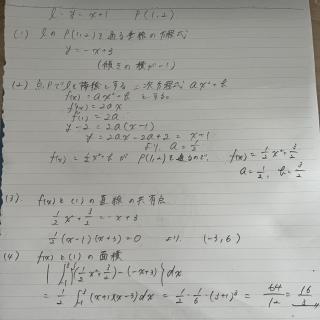 l : y = x+1　P(1,2)
(1) lの P(1,2)を通る垂線の方程式
y = -x+3
(傾きの積が-1)
(2) 点Pでlを接線とする二次方程式 ax²+b
f(x) = ax²+b とする。
f'(x) = 2ax
f'(1) = 2a
y-2 = 2a(x-1)
y = 2ax-2a+2 = x+1
より a = 1/2
f(x) = 1/2x²+b が P(1,2)を通るので、 f(x) = 1/2x²+3/2
a = 1/2, b = 3/2
(3) f(x)と(1)の直線の共有点
1/2x²+3/2 = -x+3
1/2(x-1)(x+3) = 0 より (-3,6)
(4) f(x)と(1)の面積
{(1/2x²+3/2)-(-x+3)}dx
= 1/2 ∫(x+1)(x-3)dx = 1/2・1/6・(3+1)³ = 64/12 = 16/3